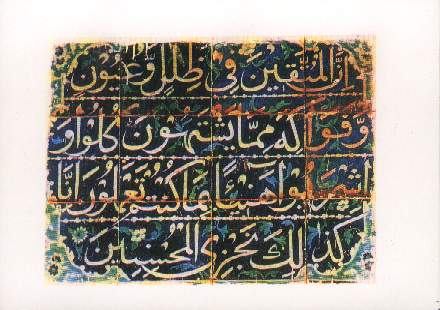 إِنَّ الْمُتَّقِينَ فِي ظِلَلٍ وَعُيُونٍ
وَفَوَاكِهَ مِمَّا يَشْتَهُونَ كُلُوا وَ
اشْرَبُوا هَنِيئًا بِمَا كُنْتُمْ تَعْمَلُونَ إِنَّا
كَذَلِكَ نَجْزِي الْمُحْسِنِينَ